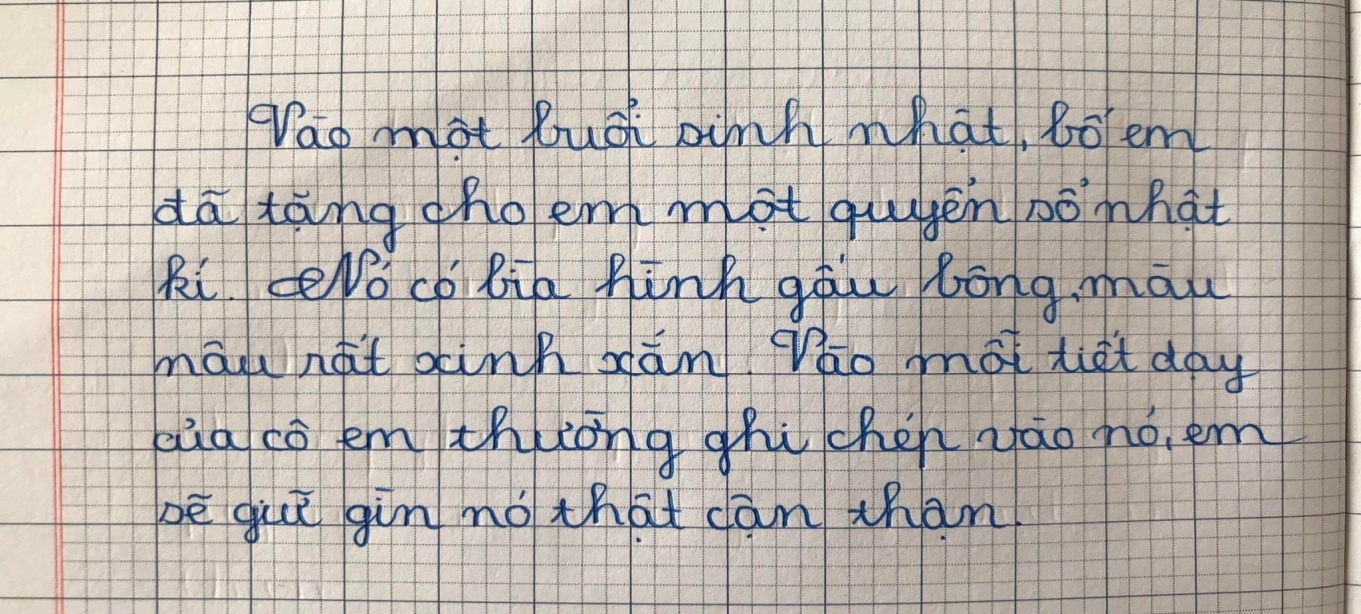 Vào một buổi sinh nhật, bố em
đã tặng cho em một quyển sổ nhật
kí. Nó có bìa hình gấu bông, màu
nâu rất xinh xắn. Vào mỗi tiết dạy
của cô em thường ghi chép vào nó, em
sẽ giữ gìn nó thật cận thận.